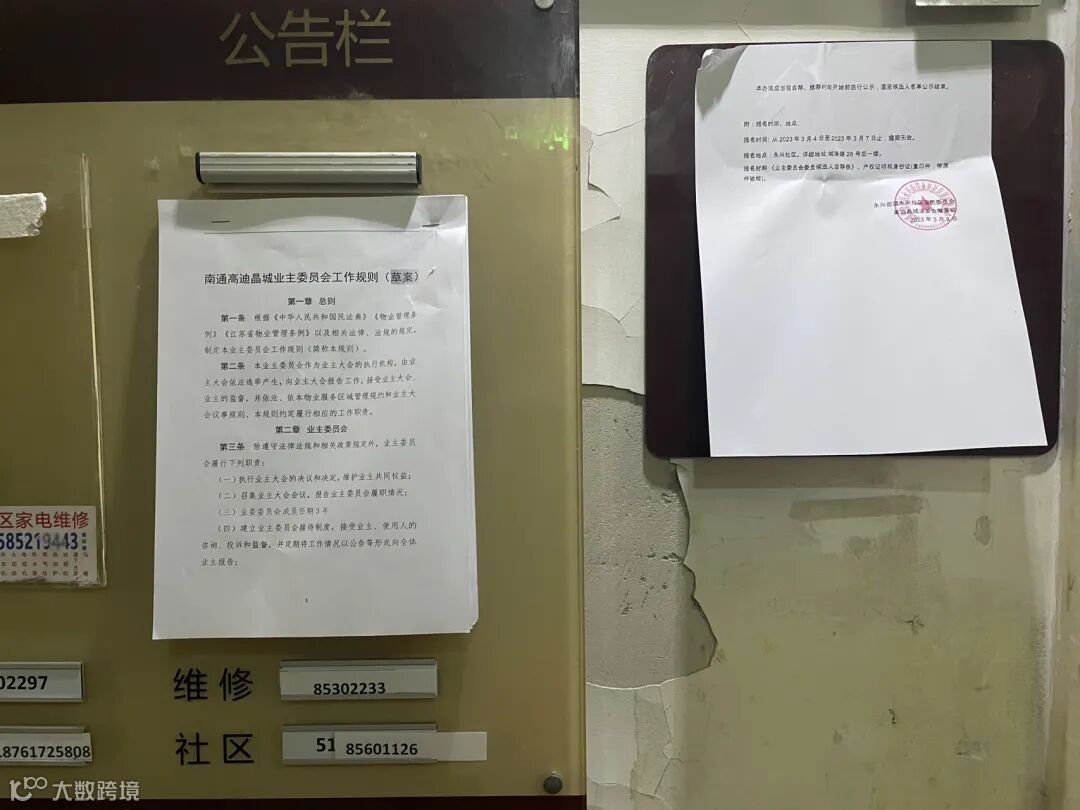 公告栏
南通高迪晶城业主委员会工作规则（草案）
第一章 总则
第一条 根据《中华人民共和国民法典》《物业管理条
例》《江苏省物业管理条例》以及相关法律、法规的规定，
制定本业主委员会工作规则（简称本规则）。
第二条 本业主委员会作为业主大会的执行机构，由业
主大会依法选举产生，向业主大会报告工作，接受业主大会、
业主的监督，并依法、依本物业服务区域管理规约和业主大
会议事规则、本规则约定履行相应的工作职责。
第二章 业主委员会
第三条 除遵守法律法规和相关政策规定外，业主委员
会履行下列职责：
（一）执行业主大会的决议和决定，维护业主共同权益；
（二）召集业主大会会议，报告业主委员会履职情况；
（三）业委委员会成员任期3年
（四）建立业主委员会接待制度，接受业主、使用人的
咨询、投诉和监督，并定期将工作情况以公告等形式向全体
业主报告；
1
区家电维修
585219443
02297
18761725808
维修 85302233
社区 51 85601126
本办法应当在自荐、推荐时间开始前进行公示，直至候选人名单公示结束。
附：报名时间、地点：
报名时间：从2023年3月4日至2023年3月7日止，逾期无效。
报名地点：永兴社区。详细地址:城港路28号后一楼。
报名材料：《业主委员会委员候选人自荐表》、产权证明和身份证(复印件，带原
件验核)。
永兴街道永兴社区居民委员会
高迪晶城业委会筹备组
2023年3月2日
大数跨境